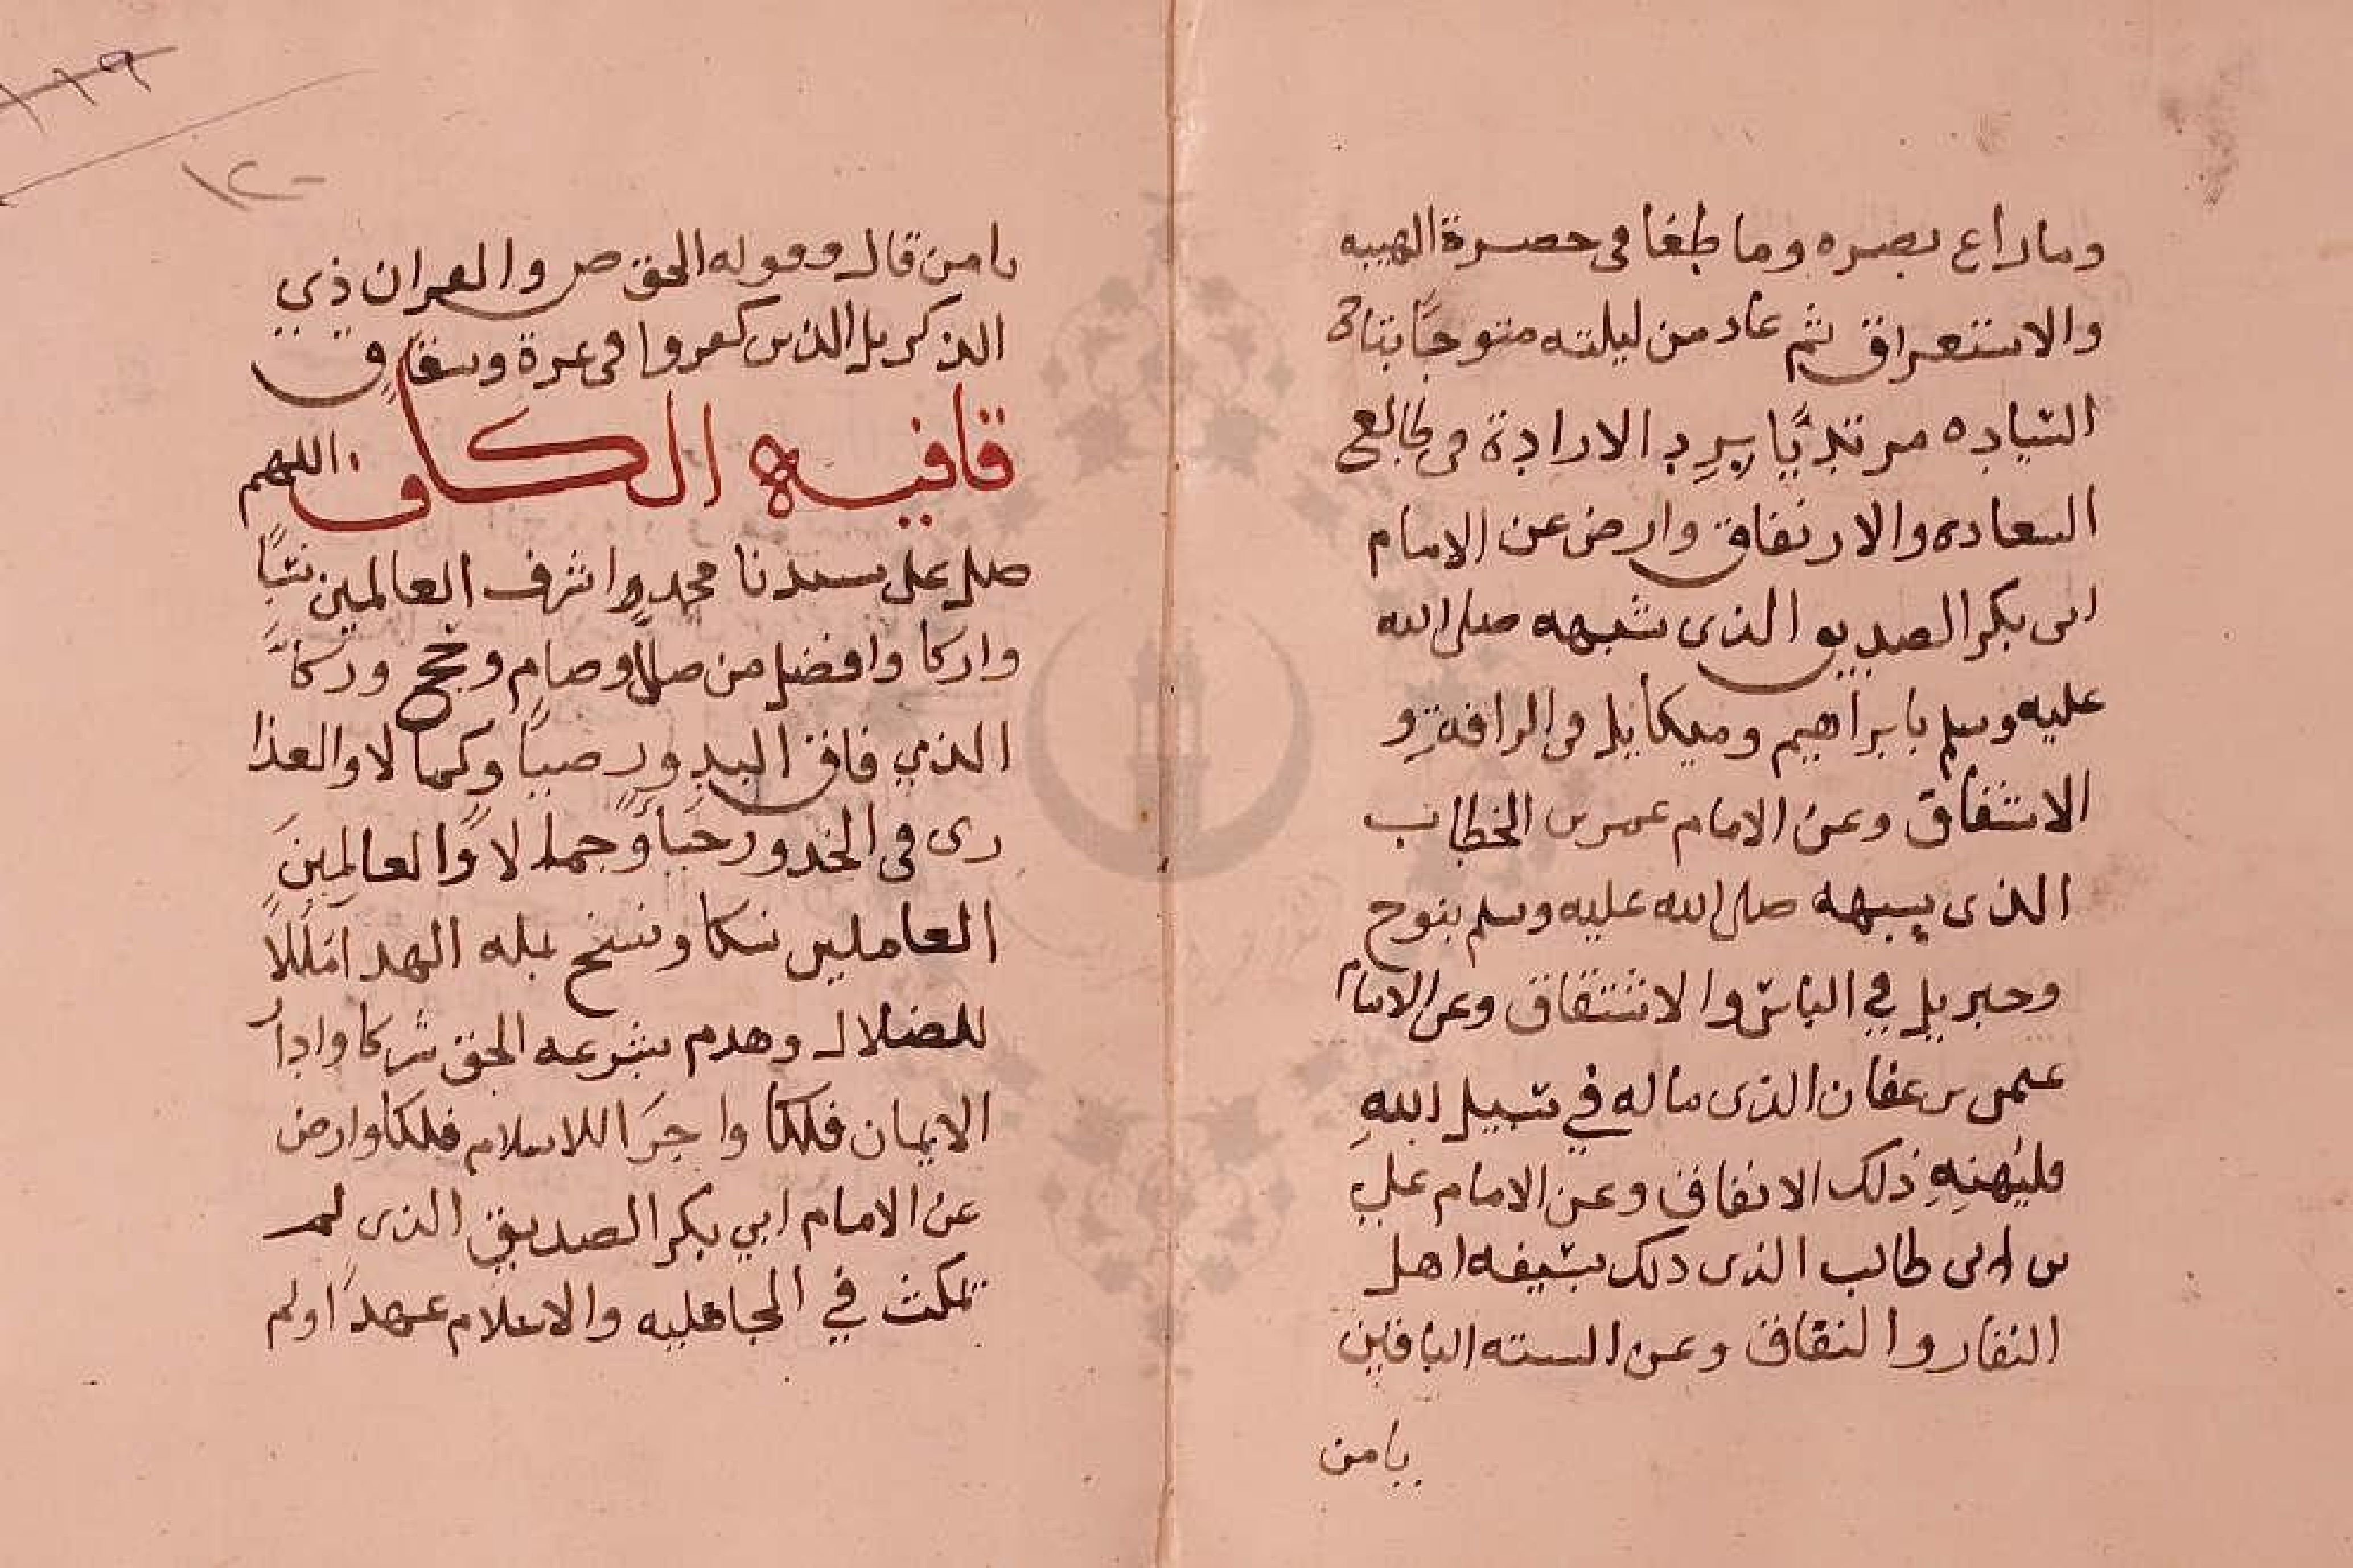 وما زاغ بصره وما طغا فى حضرة الهيبه
والاستغراق ثم عاد من ليلته متوجًا بتاج
السياده مرتديًا ببرد الارادة فى طالع
السعاده والارتفاق وارض عن الامام
ابى بكر الصديق الذى شبهه صلى الله
عليه وسلم بابراهيم وميكائيل فى الرافة و
الاشفاق وعن الامام عمر بن الخطاب
الذى شبهه صلى الله عليه وسلم بنوح
وجبريل في الباس والاشتقاق وعن الامام
عثمن بن عفان الذى ماله في سبيل اللهِ
فليُهنِهِ ذلك الانفاق وعن الامام علي
بن ابى طالب الذى دلك بسيفه اهل
النفار والنفاق وعن السته الباقين
يامن
١١٩
١٢٠
يامن قال وقوله الحق ص والقران ذي
الذكر بل الذين كفروا فى عزة وشقاق
قافية الكاف اللهم
صل على سيدنا محمد اشرف العالمين نسبًا
وازكا وافضل من صلا وصام وحج وزكا
الذي فاق البدور وكمالا والعذا
رى فى الخدور وجمالا والعالمين
العاملين نسكا ونسخ بمله الهدا مللًا
للضلال وهدم بشرعه الحق شركا وادار
الايمان فلكا واجرَا للاسلام فلكا وارض
عن الامام ابي بكر الصديق الذى لم
ينكث في الجاهليه والاسلام عهدًا ولم